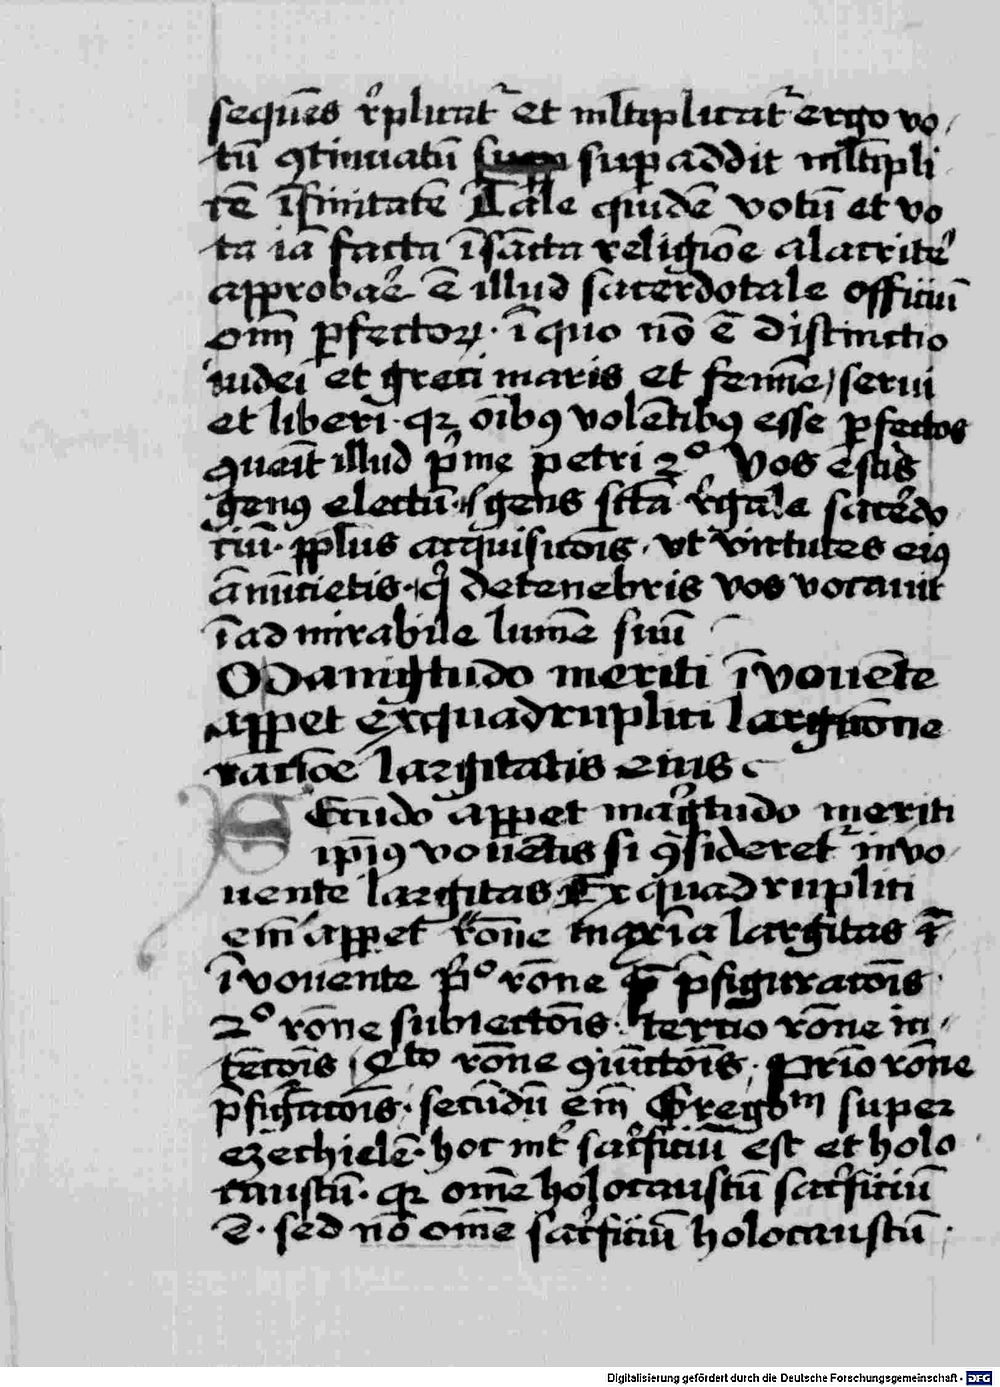 sequẽs rͥplicatᷣ et ml̃tiplicatᷣ ergo vo
tũ ꝯtinuatũ sup addit ml̃tipli
cẽ ĩfinitatẽ Tale quidẽ votũ et vo
ta iã facta ĩ sc̃ta religiõe alacritẽ
approbaẽ ẽ illud sacerdotale officiũ
om̃ ꝑfectoꝝ · ĩ quo nõ ẽ distinctio
iudei et greci maris et femĩe / serui
et liberi · qꝛ oĩbꝰ volẽtibꝰ esse ꝑfectos
illud pͥme petri 2º Vos estis
genꝰ electũ · gens sc̃ta rͤgale sacẽdo
tiũ · ppl̃us acquisitõis · vt virtutes eiꝰ
ãnũcietis · qͥ de tenebris vos vocauit
ĩ ad mirabile lumẽ suũ
Q̃ magͥtudo meriti ĩ vouẽte
appet ex quadruplici largicõne
racioẽ largitatis eius
Secũdo appet magͥtudo meriti
ip̃ıꝰ vouẽtis si ꝯsideretᷣ in vo
uente largitas Ex quadruplici
em̃ appet rõne maxĩa largitas
ĩ vouente pͥº rõne p̃figuracõis
2º rõne subiectõis · tercio rõne in
tẽcõis / qͣto rõne ꝯiũctõis · Prĩo rõne
p̃figᷓacõis · secũdũ em̃ Gregoᵐ super
ezechielẽ · hoc int̾ sacͥficiũ est et holo
caustũ · qꝛ om̃e holocaustũ sacͥficiũ
ẽ · sed nõ om̃e sacͥficiũ holocaustũ
Digitalisierung gefördert durch die Deutsche Forschungsgemeinschaft - DFG